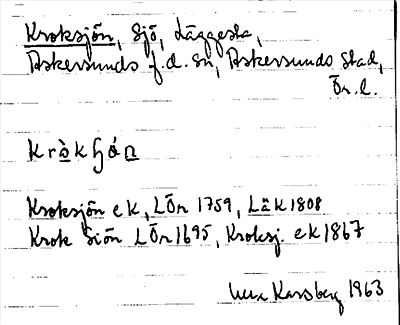 Kroksjön, Sjö, Läggesta,
Askersunds f.d. sn, Askersunds stad,
Ör. l.
kròkʃɷ́n
Kroksjön ek, LÖn 1759, Läk 1808
Krok Siön LÖn 1695, Kroksj. ek 1867
Karsberg 1963